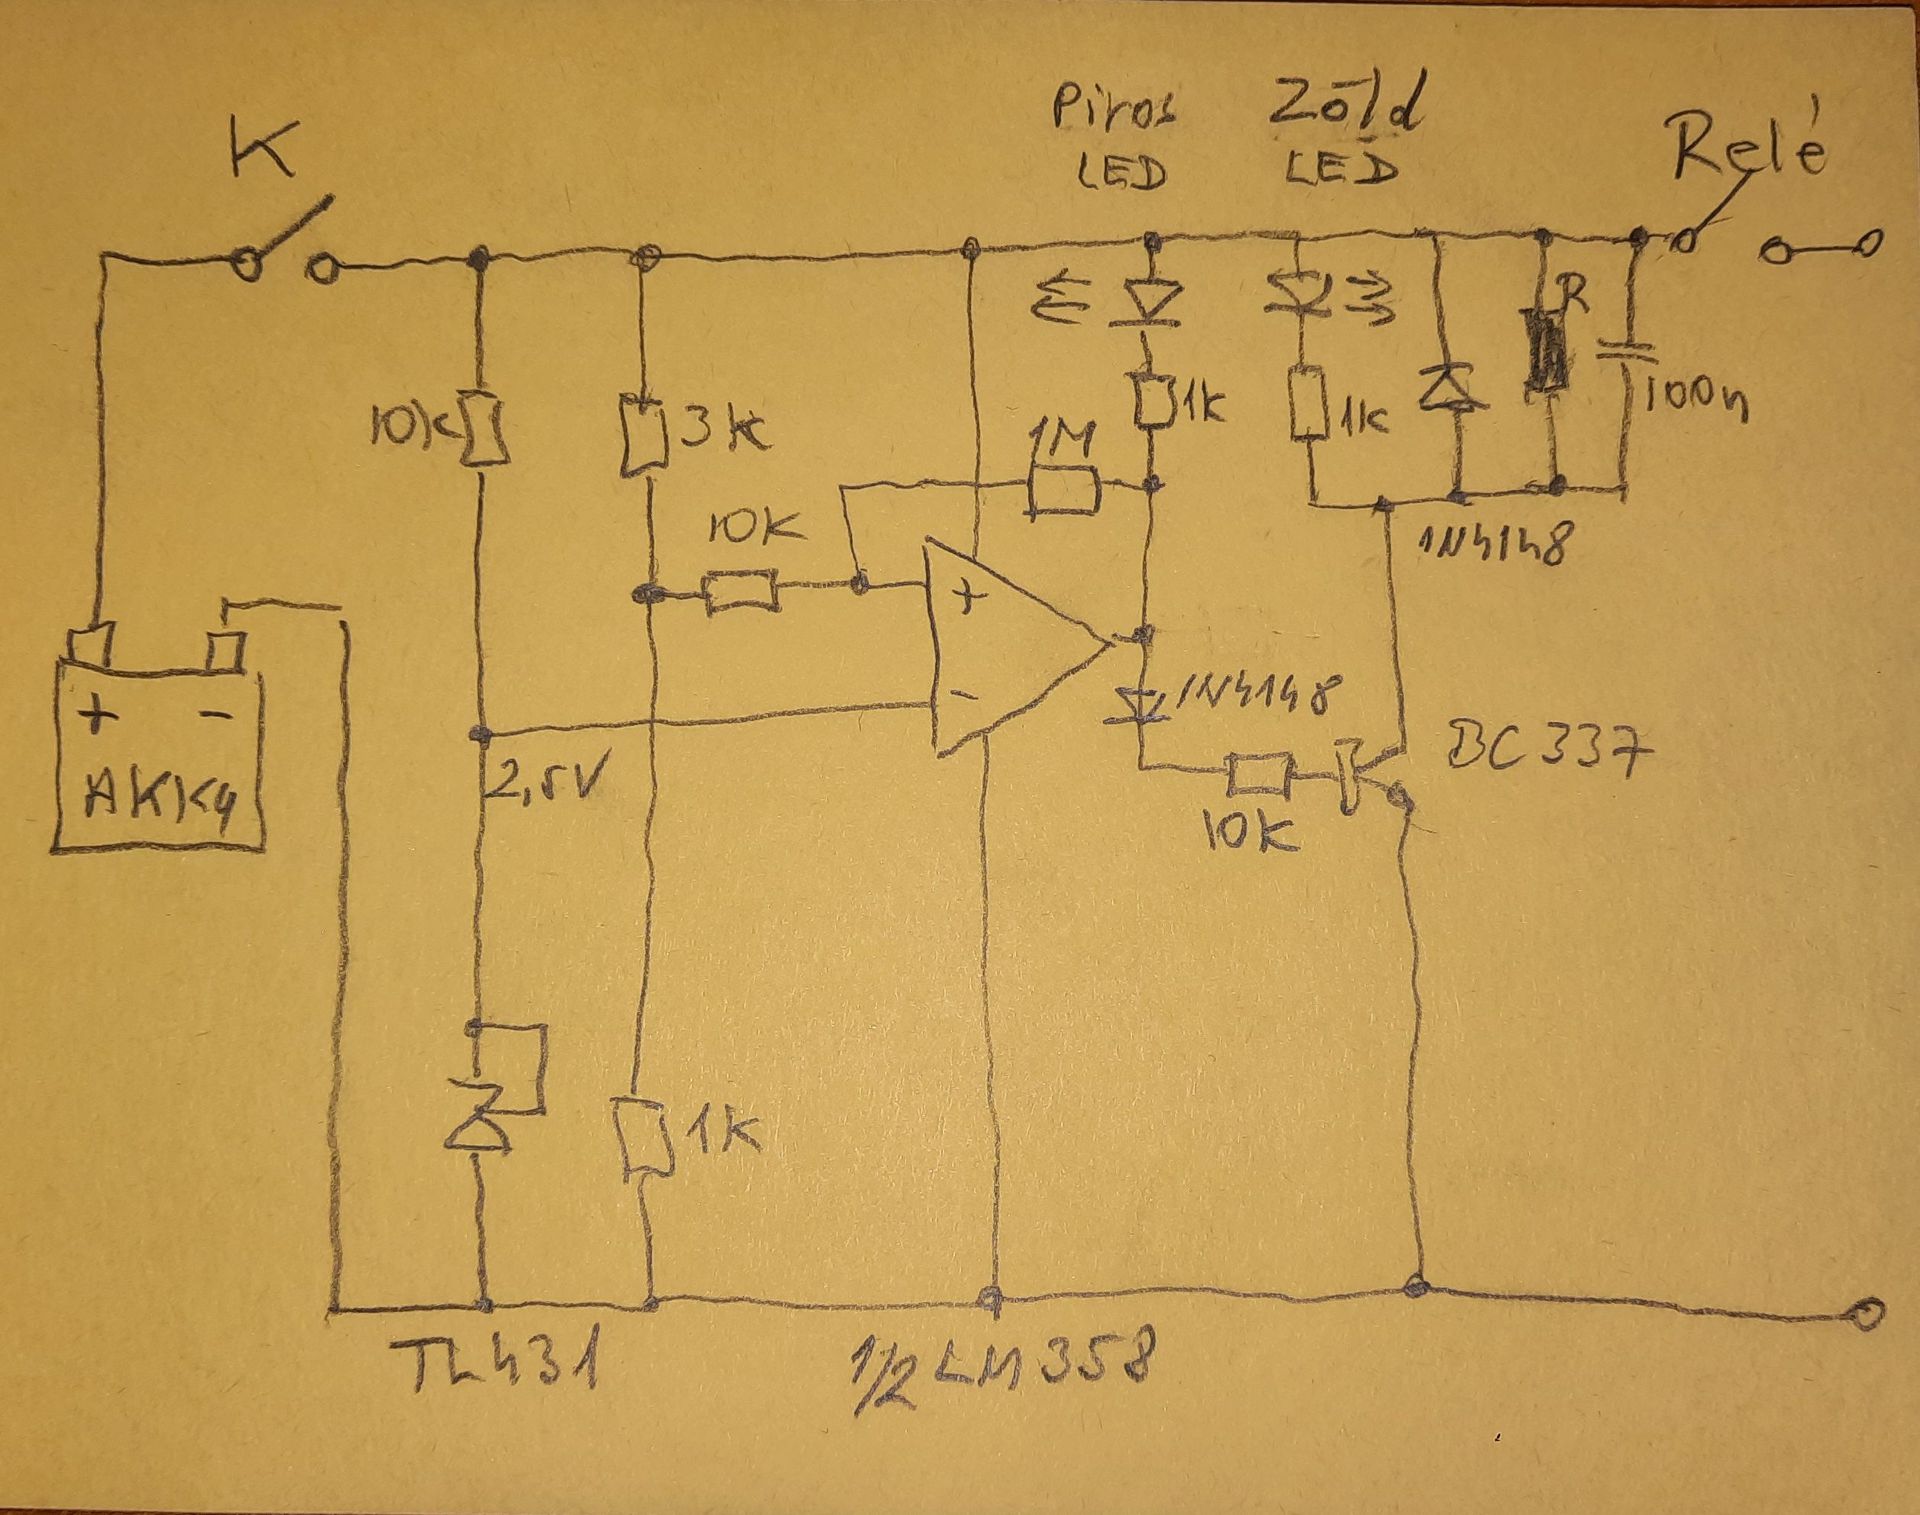 Piros
LED
Zöld
LED
K
Relé
R
10k
3k
1M
1k
1k
100n
10k
1N4148
+
-
1N4148
+ -
AKKU
2,5V
BC337
10k
1k
TL431
1/2 LM358